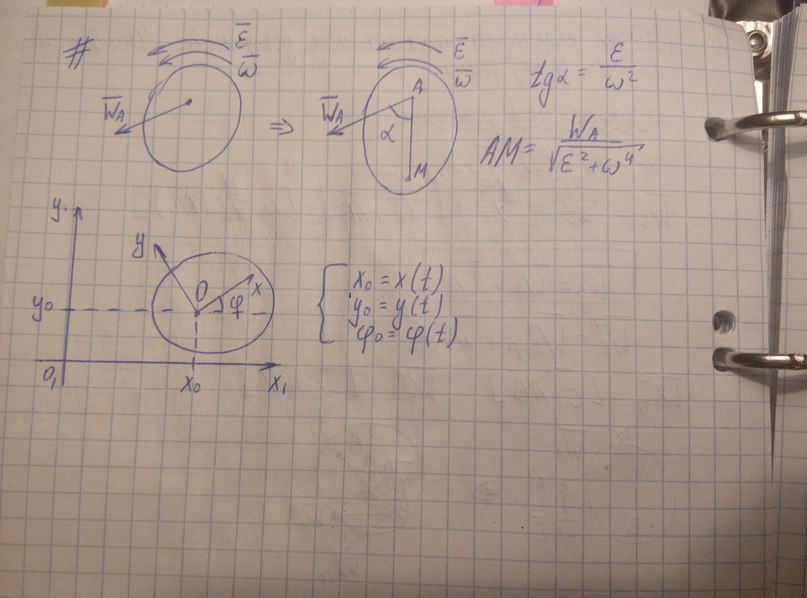 #
ε̅
ω̅
W̅_A
⇒
ε̅
ω̅
W̅_A
A
α
M
tgα = ε/ω²
AM = W_A/√(ε²+ω⁴)
y₁
y
O
x
φ
y₀
O₁
x₀
x₁
x₀ = x(t)
y₀ = y(t)
φ₀ = φ(t)